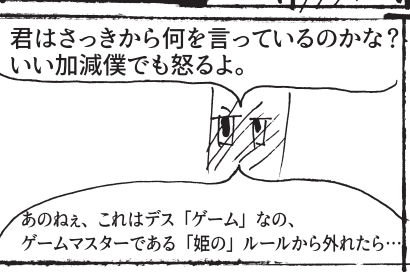 君はさっきから何を言っているのかな？
いい加減僕でも怒るよ。
あのねぇ、これはデス「ゲーム」なの、
ゲームマスターである「姫の」ルールから外れたら…